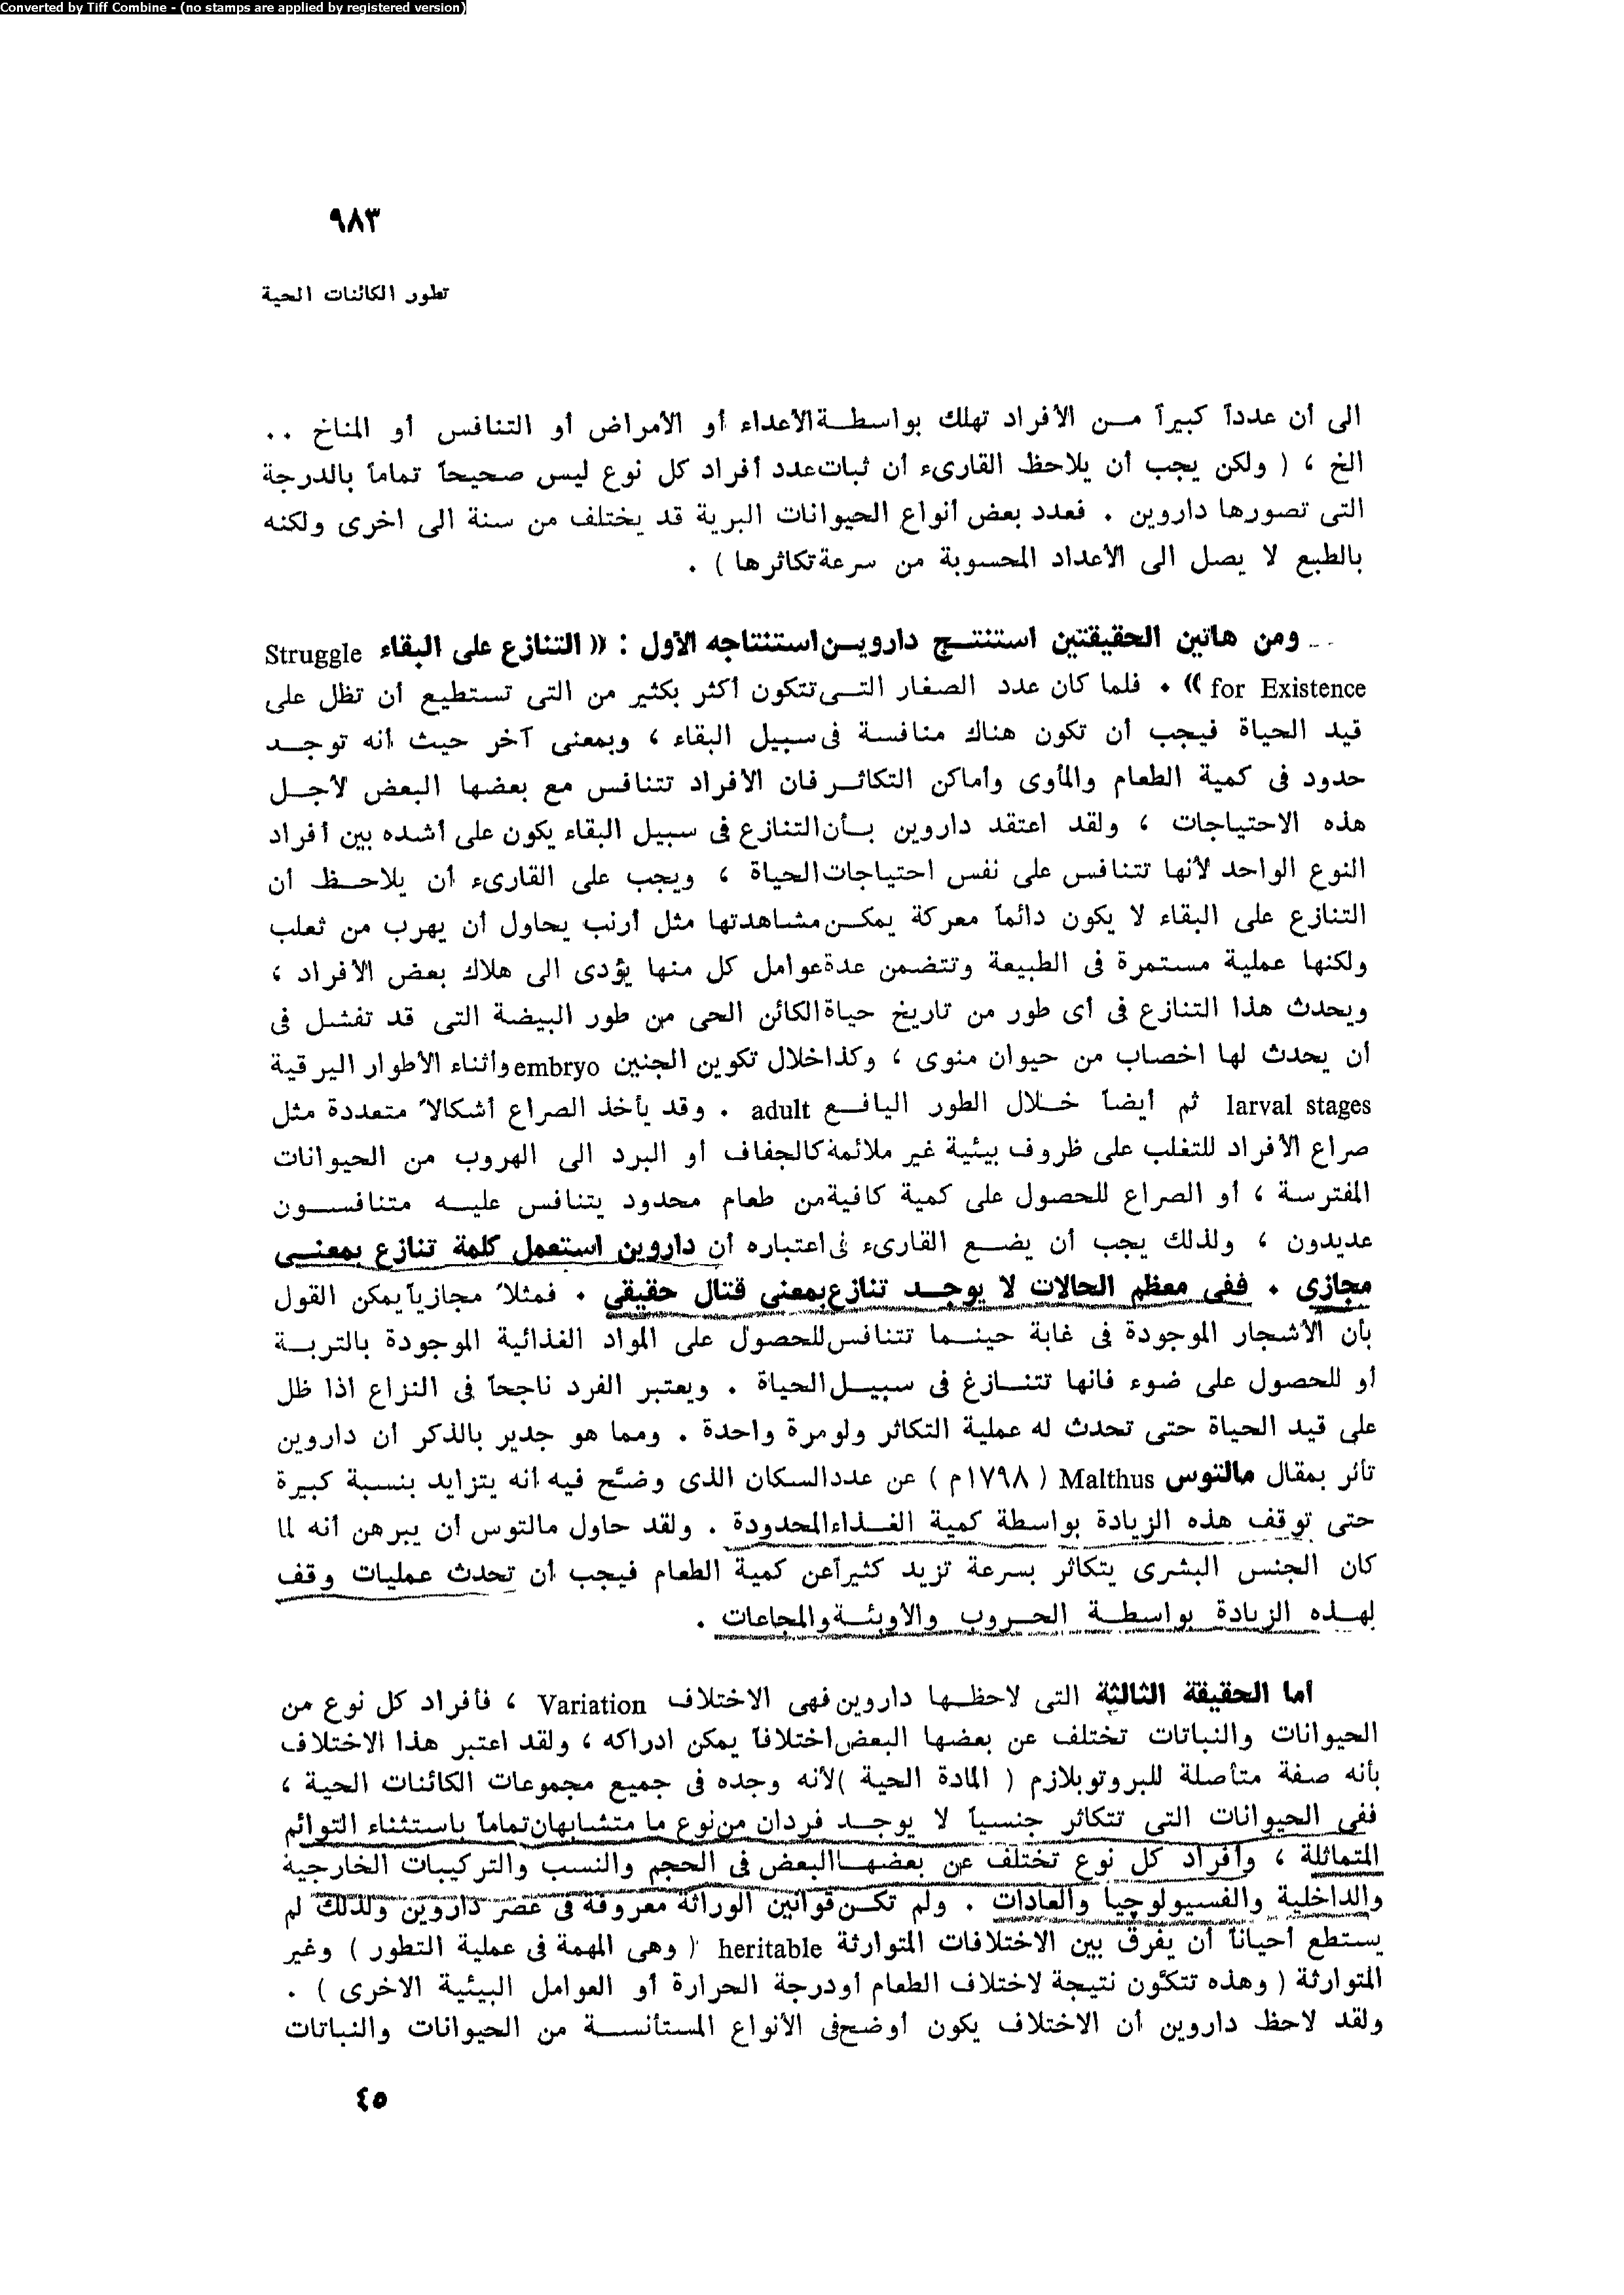 Converted by Tiff Combine - (no stamps are applied by registered version)
٩٨٣
تطور الكائنات الحية
الى أن عدداً كبيراً مـن الأفراد تهلك بواسطـة الأعداء أو الأمراض أو التنافس أو المناخ ..
الخ ، ( ولكن يجب أن يلاحظ القارىء أن ثبات عدد أفراد كل نوع ليس صحيحاً تماماً بالدرجة
التى تصورها داروين . فعدد بعض أنواع الحيوانات البرية قد يختلف من سنة الى اخرى ولكنه
بالطبع لا يصل الى الأعداد المحسوبة من سرعة تكاثرها ) .
ومن هاتين الحقيقتين استنتـج دارويـن استنتاجه الأول : (( التنازع على البقاء Struggle
for Existence )) . فلما كان عدد الصغار التـى تتكون أكثر بكثير من التى تستطيع أن تظل على
قيد الحياة فيجب أن تكون هناك منافسة فى سبيل البقاء ، وبمعنى آخر حيث أنه توجـد
حدود فى كمية الطعام والمأوى وأماكن التكاثـر فان الأفراد تتنافس مع بعضها البعض لأجـل
هذه الاحتياجات ، ولقد اعتقد داروين بـأن التنازع فى سبيل البقاء يكون على أشده بين أفراد
النوع الواحد لأنها تتنافس على نفس احتياجات الحياة ، ويجب على القارىء أن يلاحـظ أن
التنازع على البقاء لا يكون دائماً معركة يمكـن مشاهدتها مثل أرنب يحاول أن يهرب من ثعلب
ولكنها عملية مستمرة فى الطبيعة وتتضمن عدة عوامل كل منها يؤدى الى هلاك بعض الأفراد ،
ويحدث هذا التنازع فى أى طور من تاريخ حياة الكائن الحى من طور البيضة التى قد تفشل فى
أن يحدث لها اخصاب من حيوان منوى ، وكذا خلال تكوين الجنين embryo وأثناء الأطوار اليرقية
larval stages ثم أيضاً خـلال الطور اليافـع adult . وقد يأخذ الصراع أشكالاً متعددة مثل
صراع الأفراد للتغلب على ظروف بيئية غير ملائمة كالجفاف أو البرد الى الهروب من الحيوانات
المفترسة ، أو الصراع للحصول على كمية كافية من طعام محدود يتنافس عليـه متنافسـون
عديدون ، ولذلك يجب أن يضـع القارىء فى اعتباره أن داروين استعمل كلمة تنازع بمعنـى
مجازى . ففى معظم الحالات لا يوجـد تنازع بمعنى قتال حقيقى . فمثلاً مجازياً يمكن القول
بأن الأشجار الموجودة فى غابة حينـما تتنافس للحصول على المواد الغذائية الموجودة بالتربـة
أو للحصول على ضوء فانها تتنـازع فى سبيـل الحياة . ويعتبر الفرد ناجحاً فى النزاع اذا ظل
على قيد الحياة حتى تحدث له عملية التكاثر ولو مرة واحدة . ومما هو جدير بالذكر أن داروين
تأثر بمقال مالتوس Malthus ( ١٧٩٨م ) عن عدد السكان الذى وضَّح فيه أنه يتزايد بنسبة كبيرة
حتى توقف هذه الزيادة بواسطة كمية الغـذاء المحدودة . ولقد حاول مالتوس أن يبرهن أنه لما
كان الجنس البشرى يتكاثر بسرعة تزيد كثيراً عن كمية الطعام فيجب أن تحدث عمليات وقف
لهـذه الزيادة بواسطـة الحـروب والأوبئـة والمجاعات .
أما الحقيقة الثالثة التى لاحظـها داروين فهى الاختلاف Variation ، فأفراد كل نوع من
الحيوانات والنباتات تختلف عن بعضها البعض اختلافاً يمكن ادراكه ، ولقد اعتبر هذا الاختلاف
بأنه صفة متأصلة للبروتوبلازم ( المادة الحية ) لأنه وجده فى جميع مجموعات الكائنات الحية ،
ففى الحيوانات التى تتكاثر جنسياً لا يوجـد فردان من نوع ما متشابهان تماماً باستثناء التوائم
المتماثلة ، وأفراد كل نوع تختلف عن بعضهـا البعض فى الحجم والنسب والتركيبات الخارجية
والداخلية والفسيولوچيا والعادات . ولم تكـن قوانين الوراثة معروفة فى عصر داروين ولذلك لم
يستطع أحياناً أن يفرق بين الاختلافات المتوارثة heritable ( وهى المهمة فى عملية التطور ) وغير
المتوارثة ( وهذه تتكَّون نتيجة لاختلاف الطعام أو درجة الحرارة أو العوامل البيئية الأخرى ) .
ولقد لاحظ داروين أن الاختلاف يكون أوضح فى الأنواع المستأنسـة من الحيوانات والنباتات
٤٥